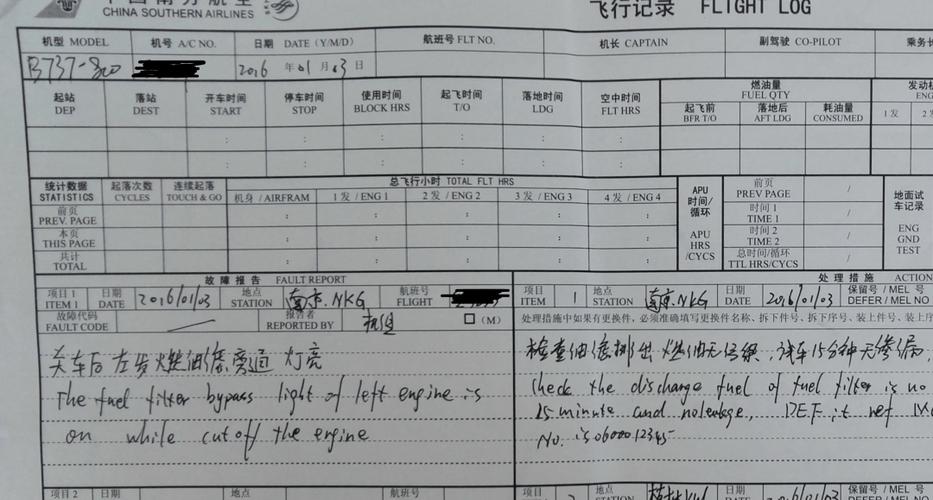 中国南方航空
CHINA SOUTHERN AIRLINES
飞行记录 FLIGHT LOG
机型 MODEL 机号 A/C NO. 日期 DATE (Y/M/D) 航班号 FLT NO. 机长 CAPTAIN 副驾驶 CO-PILOT 乘务长
B737-800 2016 年 01 月 03 日
起站 落站 开车时间 停车时间 使用时间 起飞时间 落地时间 空中时间 燃油量 FUEL QTY 发动机
DEP DEST START STOP BLOCK HRS T/O LDG FLT HRS 起飞前 落地后 耗油量 ENG
BFR T/O AFT LDG CONSUMED 1发 2发
统计数据 起落次数 连续起落 总飞行小时 TOTAL FLT HRS APU 前页 / 地面试
STATISTICS CYCLES TOUCH & GO 机身 / AIRFRAM 1发 / ENG 1 2发 / ENG 2 3发 / ENG 3 4发 / ENG 4 时间/ PREV PAGE 车记录
前页 循环 时间 1 /
PREV. PAGE TIME 1
本页 APU 时间 2 / ENG
THIS PAGE HRS TIME 2 GND
共计 /CYCS 总时间/循环 / TEST
TOTAL TTL HRS/CYCS
故障报告 FAULT REPORT 处理措施 ACTION
项目 1 日期 2016/01/03 地点 南京.NKG 航班号 项目 1 地点 南京.NKG 日期 2016/01/03 保留号 / MEL 号
ITEM 1 DATE STATION FLIGHT ITEM STATION DATE DEFER / MEL NO
故障代码 报告者 机组 (M) 处理措施中如果有更换件，必须准确填写更换件名称、拆下件号、拆下序号、装上件号、装上序
FAULT CODE REPORTED BY
关车后左发燃油滤旁通灯亮
The fuel filter bypass light of left engine is
on while cutoff the engine
检查油滤排出燃油无 试车15分钟无渗漏，
Check the discharge fuel of fuel filter is no
15 minute and no leakage,
No. is 0600012345
项目 2 日期 地点 航班号 地点 日期 2016/01/03 保留号 / MEL 号
DEFER / MEL NO